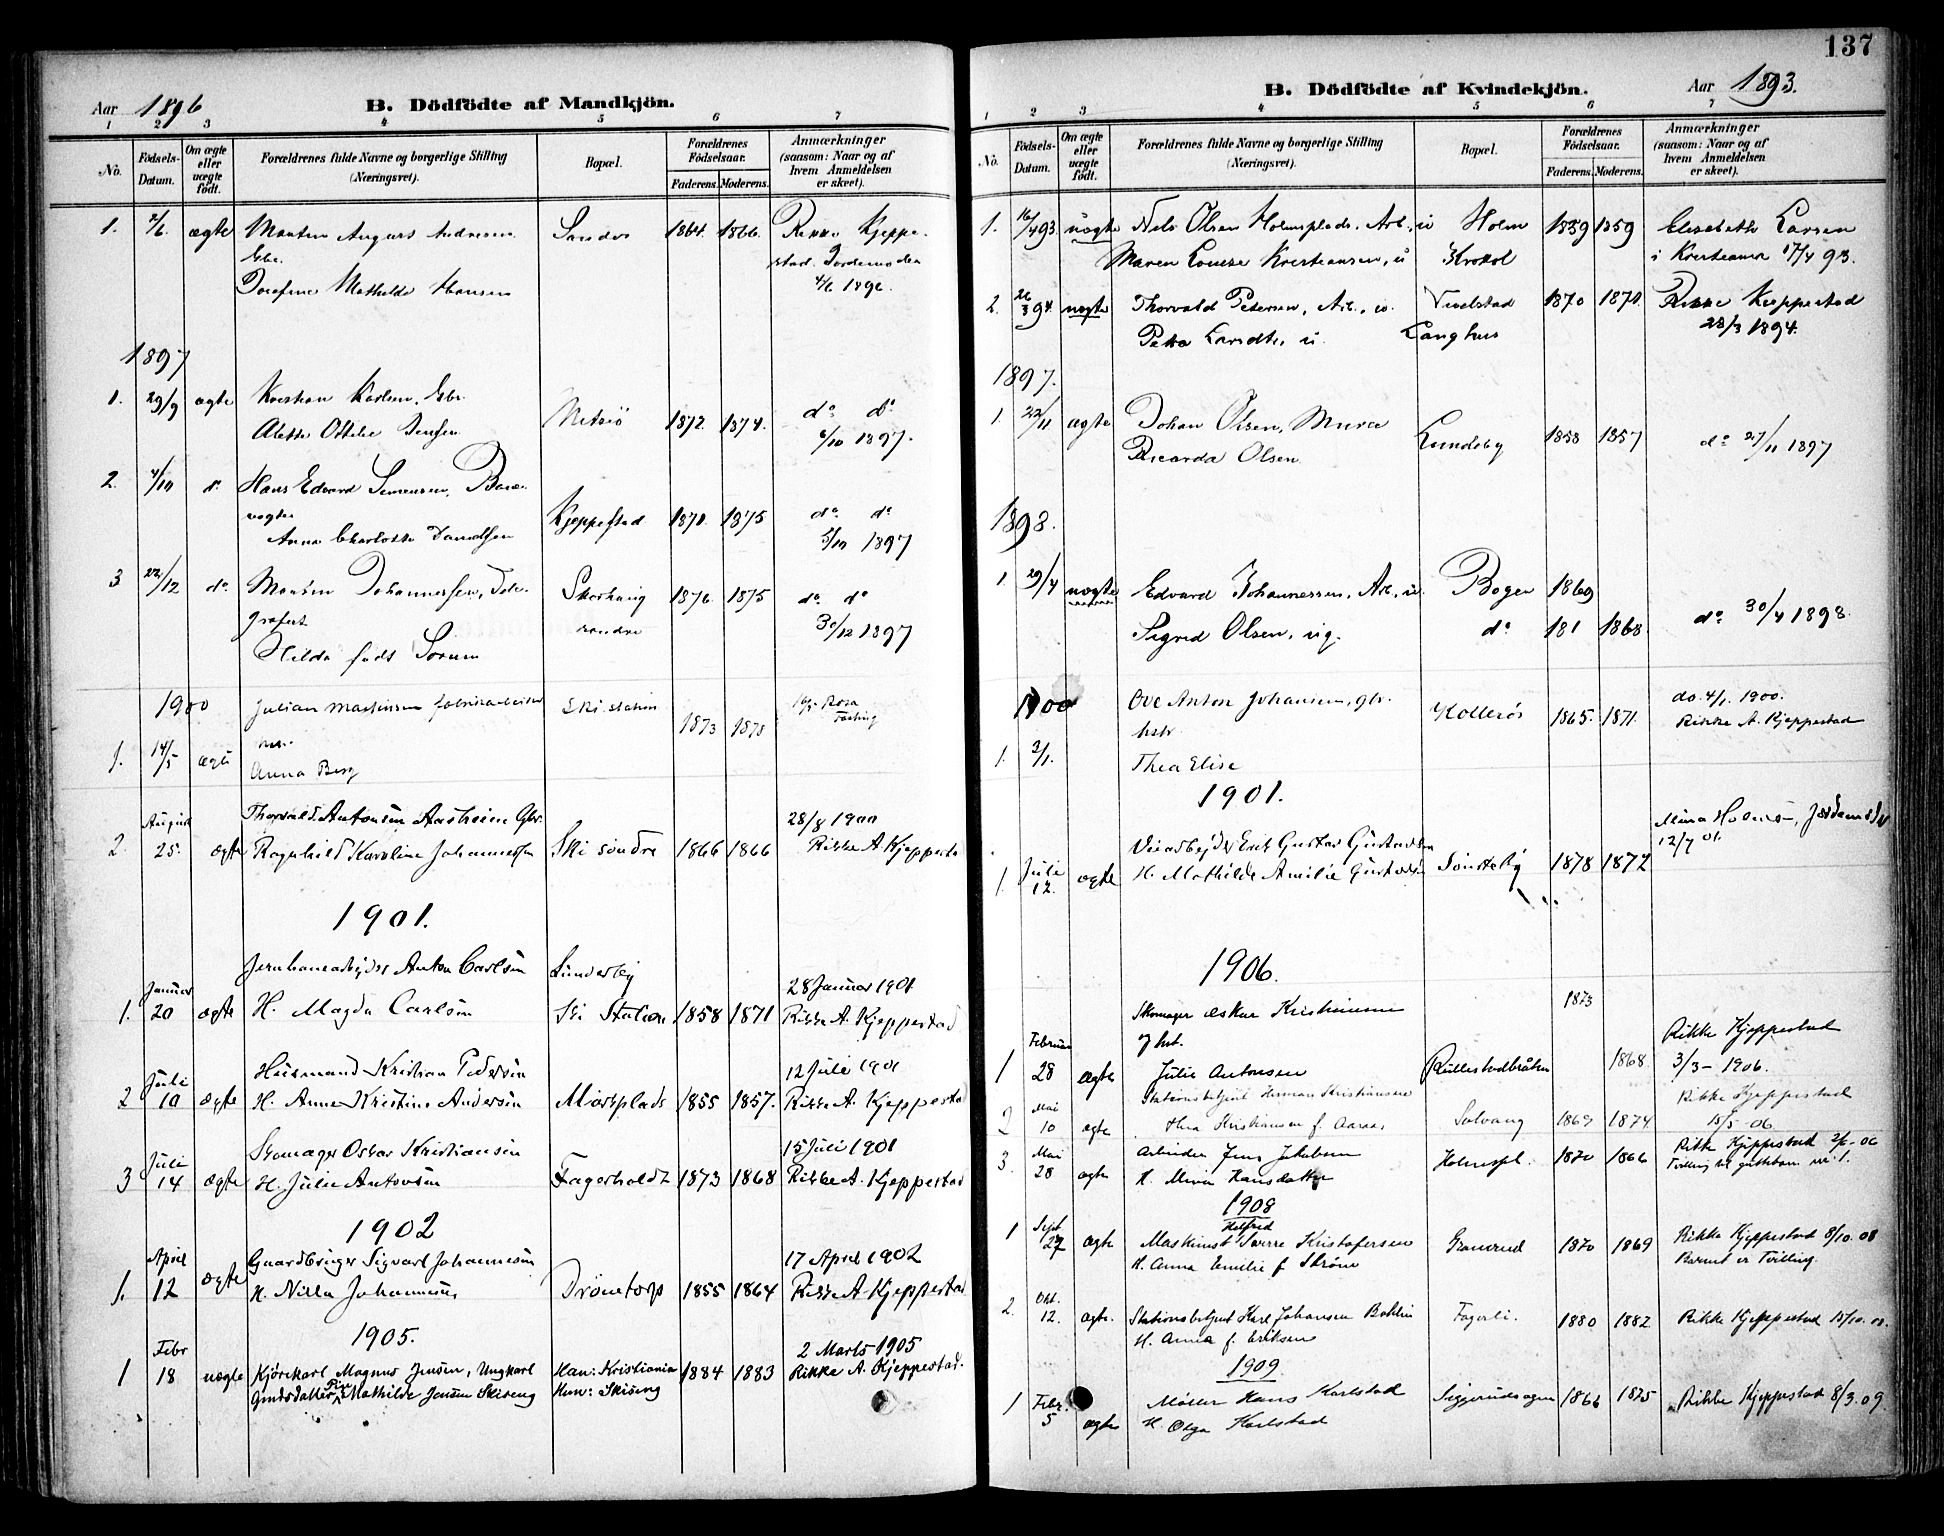 Aar 1896 B. Dödfödte af Mandkjön.
1 2 3 4 5 6 7
No. Födsels-Datum. Om ægte eller uægte födt. Forældrenes fulde Navne og borgerlige Stilling (Næringsvei). Bopæl. Forældrenes Födselsaar. Faderens. Moderens. Anmærkninger (saasom: Naar og af hvem Anmeldelsen er skeet).
1. ægte Martin August Andresen Sander 1864. 1866. Rikke Kjeppe-
Gbr. stad. Jordemoder
Josefine Mathilde Hansen 4/6 1896.
1897
1. 29/9 ægte Kristian Karlsen, Gbr. 1872. 1874. do do
Alette Ottilie Jensen 6/10 1897.
2. 4/10 do Hans Edvard Simensen, Bane-
vogter Kjeppestad 1870. 1875 do do
Anna Charlotte 5/10 1897
3 22/12 do Martin Johannessen, Tele- 1876. 1875 do do
grafist søndre 30/12 1897
Hilda født Sørum
1900 Julian Martinsen fabrikarbeider Ski station 1873
1. 14/5 ægte Anna Berg
August Thorvald Antonsen Gbr. 28/8 1900
2. 25. ægte Ragnhild Karoline Johannessen Ski søndre 1866 1866 Rikke A Kjeppesta
1901.
Jernbanearbejder Anton Carlsen Sunderby
Januar 28 Januar 1901
1. 20 ægte H. Magda Carlsen Ski Station 1858 1871 Rikke A. Kjeppestad
Juli Husmand Kristian Pedersen 12 Juli 1901
2 10 ægte H. Anne Kristine Andersen Mörkplads 1855 1857. Rikke A. Kjeppestad
Juli Skomager Oskar Kristiansen 15 Juli 1901
3 14 ægte H. Julie Antonsen Fagerholdt 1873 1868 Rikke A. Kjeppestad
1902
April Gaardbruger Sigvart Johannesen 17 April 1902
1. 12 ægte H. Nilla Johannesen Drömtorp 1855 1864 Rikke A Kjeppestad
1905.
Febr 2 Marts 1905
1 18 uægte Kjørekarl Magnus Jensen, Ungkarl Han: Kristiania 1884 1883 Rikke A. Kjeppestad.
Gmdsdatter Pige Mathilde Jensen Skiseng Hun: Skiseng
137
B. Dödfödte af Kvindekjön. Aar 1893.
1 2 3 4 5 6 7
No. Födsels-Datum. Om ægte eller uægte födt. Forældrenes fulde Navne og borgerlige Stilling (Næringsvei). Bopæl. Forældrenes Födselsaar. Faderens. Moderens. Anmærkninger (saasom: Naar og af hvem Anmeldelsen er skeet).
1. 16/4 93 uægte Nils Olsen Holmsplads, Arb., u Holm 1859 1859 Elisabeth Larsen
Maren Louise Kristiansen, u Krokol i Kristiania 17/4 93.
2. 26/3 94. uægte Thorvald Petersen, Arb., u. Vevelstad 1870 1870. Rikke Kjeppestad
Petra u. Langhus 28/3 1894.
1897.
1. 22/11 ægte Johan Olsen, Murer Lundeby 1858 1857 do 27/11 1897
Ricarda Olsen
1898.
1. 29/4 uægte Edvard Johannessen, Arb., u. Bogen 1869
Sigrid Olsen, ug. do 181 1868. do 30/4 1898.
1900 Ove Anton Johansen, gbr. Kollerös 1865. 1871. do. 4/1. 1900.
hstr. Rikke A. Kjeppestad
1. 3/1. Thea Elise
1901.
Erik Gustav Gustavsen Mina Holmsen, Jordemoder
12/7 01.
1 Juli 12. ægte H. Mathilde Amilie Gustavsen Sönsteby 1878 1872
1906.
Skomager Oskar Kristiansen 1873
Februar og hst. Rikke Kjeppestad
1 28 ægte Julie Antonsen Rullestadbråten 1868 3/3 - 1906.
Mai Stationsbetjent Herman Kristiansen Rikke Kjeppestad
2 10 ægte Thea Kristiansen f. Aaraas Solvang 1869 1874 15/5 06.
Mai Arbeider Jens Jakobsen Rikke Kjeppestad 2/6-06
3. 28 ægte H. Mina Hansdatter Holmspl. 1870 1866 Tvilling til guttebarn nr. 1.
1908
Sept Helfred
1 27 ægte Maskinist Sverre Kristofersen Granerud 1870 1869 Rikke Kjeppestad 8/10.08
H. Anna Emilie f Strøm Barnet er Tvilling.
Okt.
2. 12. ægte. Stationsbetjent Karl Johansen Bohlin Fagerli. 1880 1882 Rikke Kjeppestad 15/10.08.
H. Anna f. Eriksen
1909
1 Febr. 5 ægte Møller Hans Karlstad Siggerudsagen 1866 1875 Rikke Kjeppestad 8/3.09.
H. Olga Karlstad